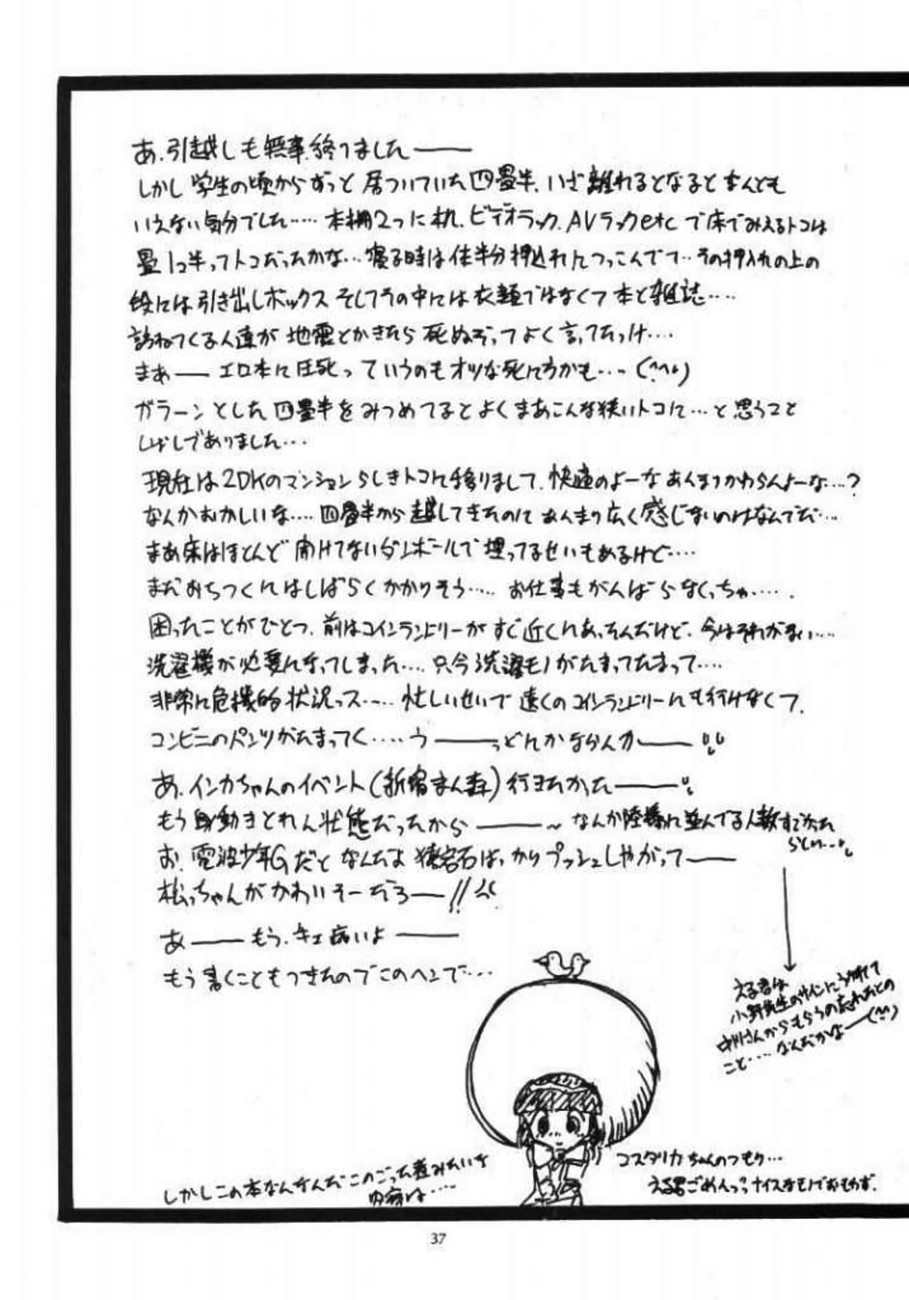 あ、引越しも無事、終りました――
しかし学生の頃からずっと居ついていた四畳半、いざ離れるとなるとなんとも
いえない気分でした……本棚2つに机、ビデオラック、AVラックetcで床でみえるトコは
畳1コ半ってトコだったかな…寝る時は体半分押込れにつっこんでて…その押入れの上の
段には引き出しボックスそしてその中には衣類ではなくて本と雑誌……
訪ねてくる人達が地震とかきたら死ぬぞってよく言ってたっけ……
まぁ――エロ本に圧死っていうのもオツな死に方かも…
ガラーンとした四畳半をみつめてるとよくまあこんな狭いトコに…と思うこと
しばしでありました…
現在は2DKのマンションらしきトコに移りまして、快適のよーなあんまりかわらんよーな…?
なんかおかしいな……四畳半から越してきたのにあんまり広く感じないのはなんでだ……
まあ床はほとんど開けてないダンボールで埋ってるせいもあるけど……
まだおちつくにはしばらくかかりそう……お仕事もがんばらなくっちゃ……
困ったことがひとつ、前はコインランドリーがすぐ近くにあったんだけど、今はそれがない……
洗濯機が必要になってしまった……只今洗濯モノがたまってたまって……
非常に危機的状況っス……忙しいせいで遠くのコインランドリーにも行けなくて、
コンビニのパンツがたまってく……う――っどんかならんか――
あ、インカちゃんのイベント(新宿まん森)行きたかった――
もう身動きとれん状態だったから――~なんか陸橋に並んでる人数すごかった
らしい…
お、電波少年Gだとなんだよ猿岩石ばっかりプッシュしやがって――
松っちゃんがかわいそーだろ―!!
あ――もう、キェ痛いよ――
もう書くこともつきたのでこのヘンで…
える君は
小野先生のサインにうかれて
さんからもらうの忘れたとの
こと……なんだかな―(^^)
コスタリカちゃんのつもり…
える君ごめんっっナイスなモノでおもわず、
しかしこの本なんなんだこのごった煮みたいな
内容は……
37